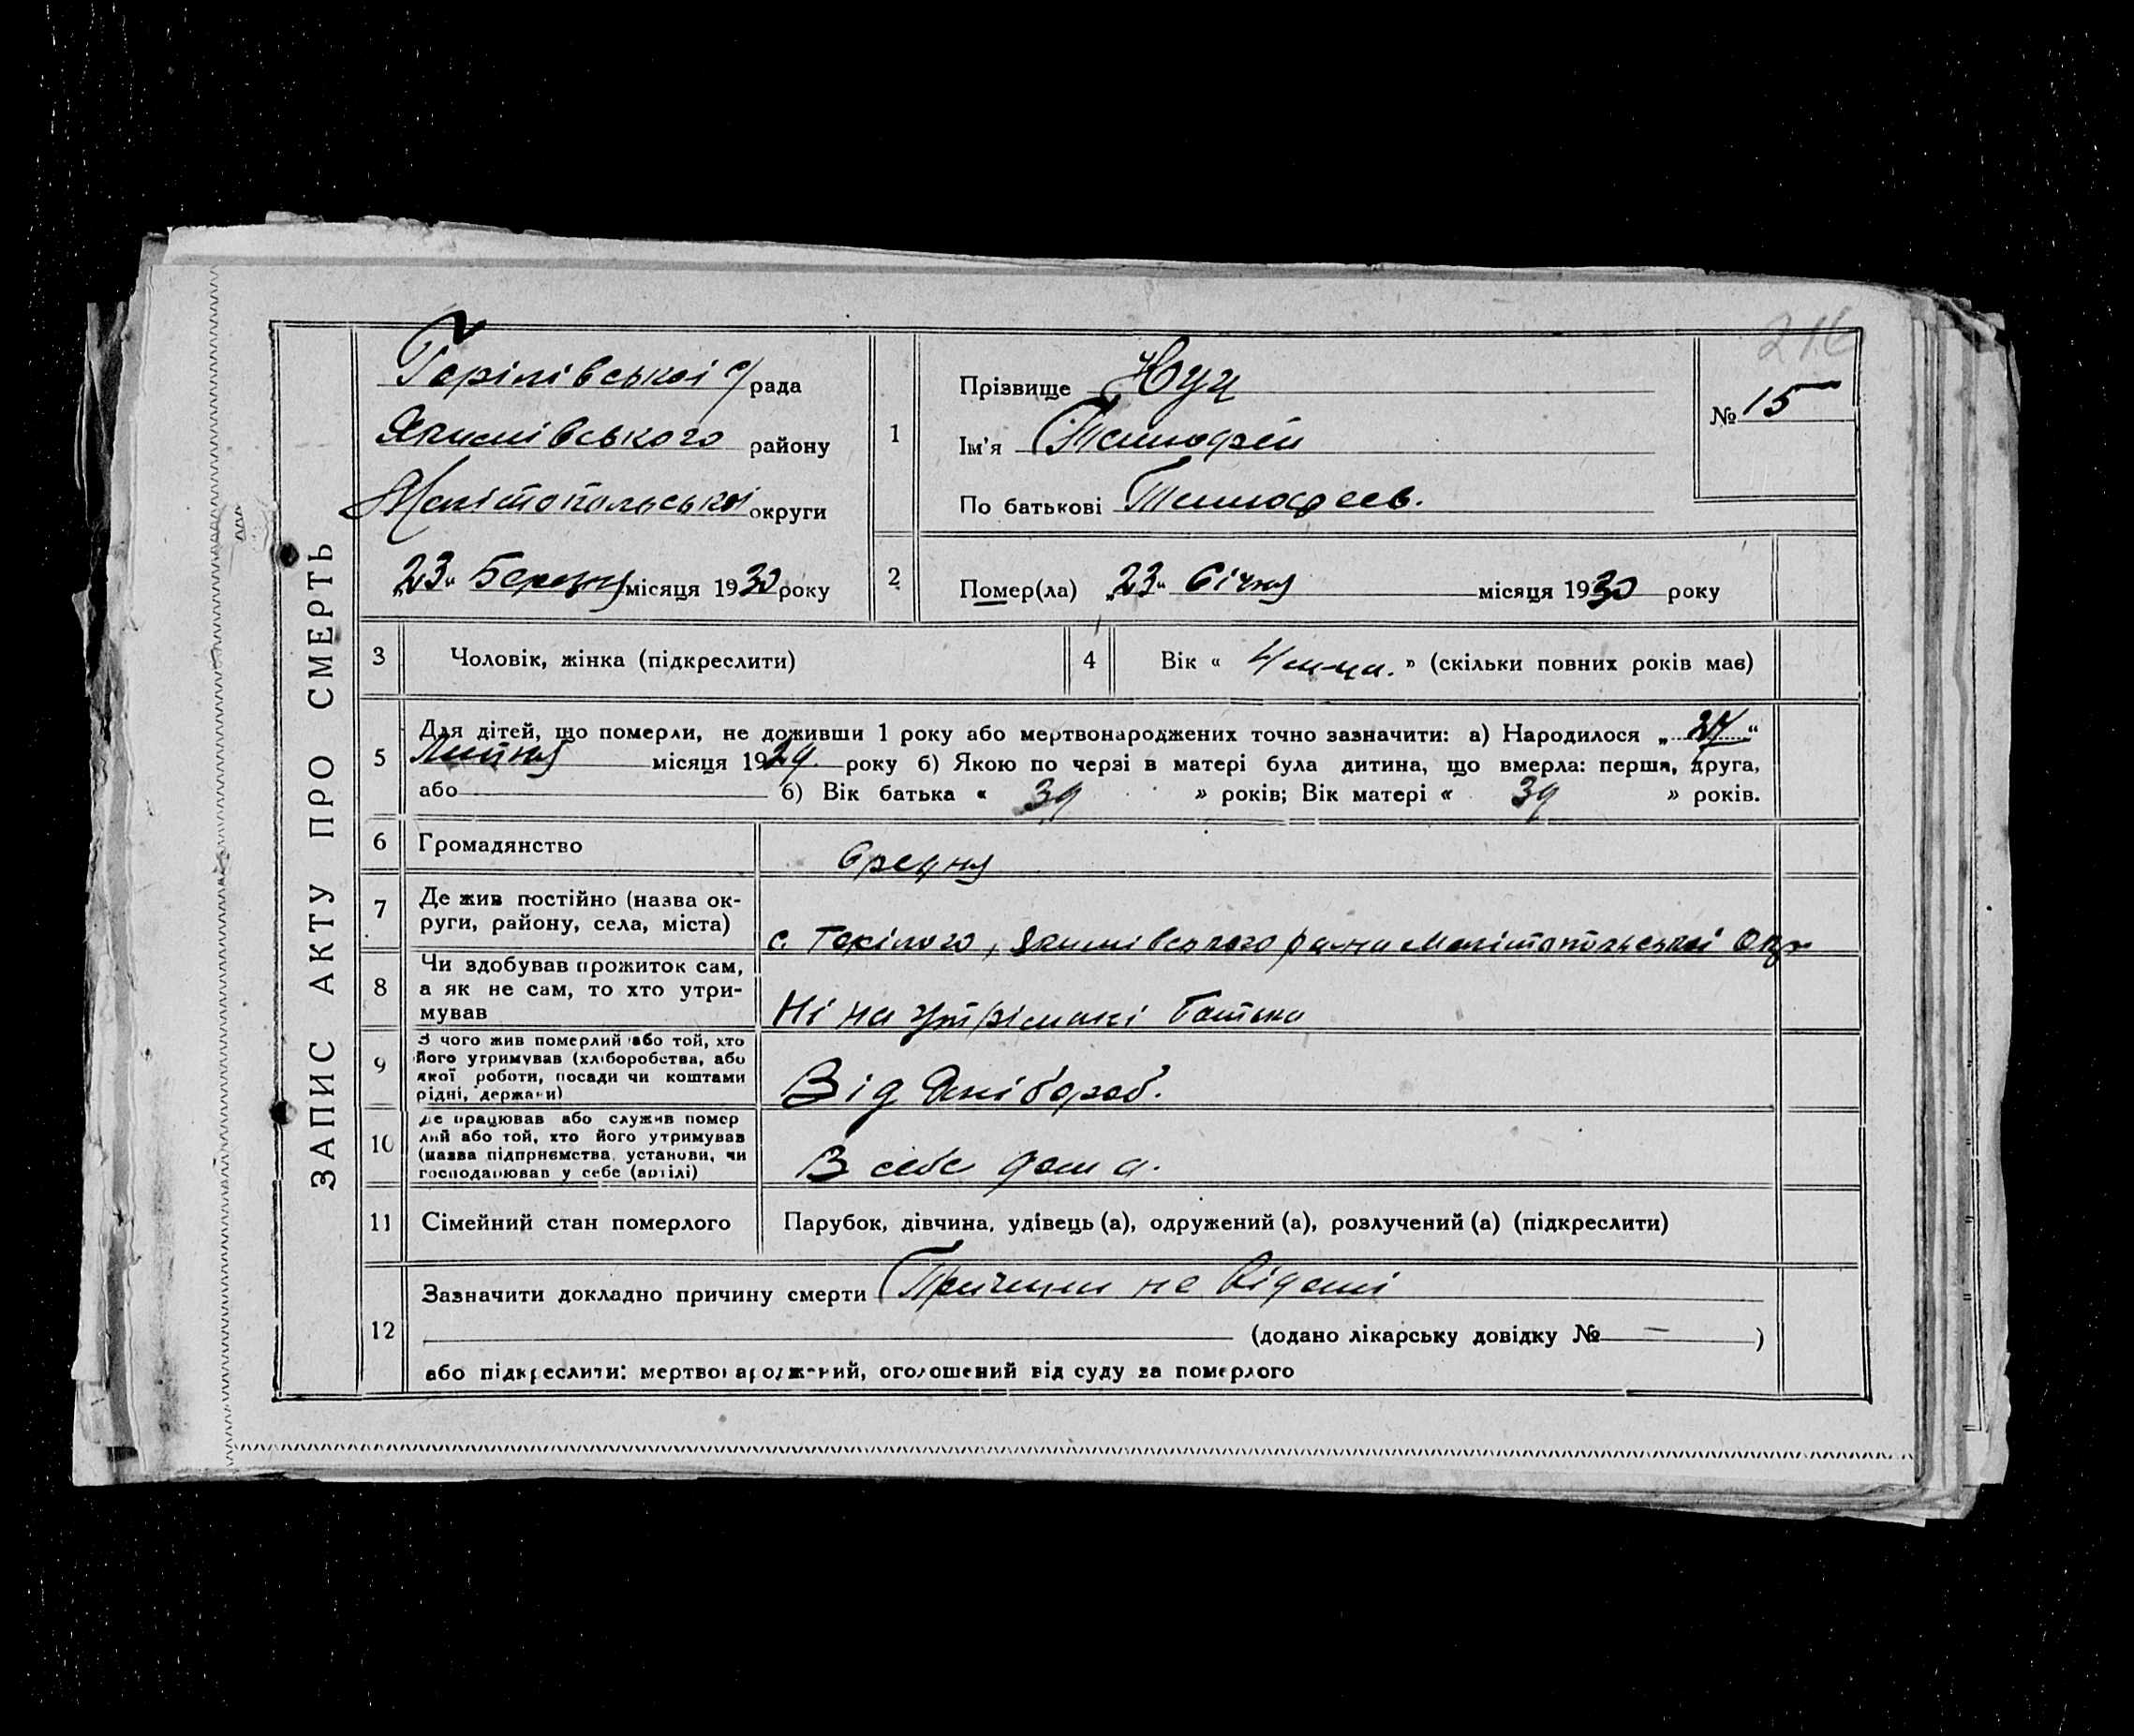 ЗАПИС АКТУ ПРО СМЕРТЬ
216
Горілівської с/рада
Якимівського району
Мелітопольської округи
„23“ Березня місяця 1930 року
1
Прізвище Нуц
Ім'я Тимофей
По батькові Тимофеев.
№ 15
2
Помер(ла) „23“ Січня місяця 1930 року
3 Чоловік, жінка (підкреслити)
4 Вік « » (скільки повних років має)
5 Для дітей, що померли, не доживши 1 року або мертвонароджених точно зазначити: а) Народилося „ “
місяця 1929 року б) Якою по черзі в матері була дитина, що вмерла: перша, друга,
або б) Вік батька « 39 » років; Вік матері « 39 » років.
6 Громадянство
7 Де жив постійно (назва ок-
руги, району, села, міста)
с. Якимівського району Мелітопольської Окр
8 Чи здобував прожиток сам,
а як не сам, то хто утри-
мував
Ні на утрімані батька
9 З чого жив померлий або той, хто
його утримував (хліборобства, або
якої роботи, посади чи коштами
рідні, держави)
Від
10 Де працював або служив помер
лий або той, хто його утримував
(назва підприємства, установи, чи
господарював у себе (артілі)
В себе дома.
11 Сімейний стан померлого
Парубок, дівчина, удівець (а), одружений (а), розлучений (а) (підкреслити)
12
Зазначити докладно причину смерти Причини не відомі
(додано лікарську довідку № — )
або підкреслити: мертвонароджений, оголошений від суду за померлого